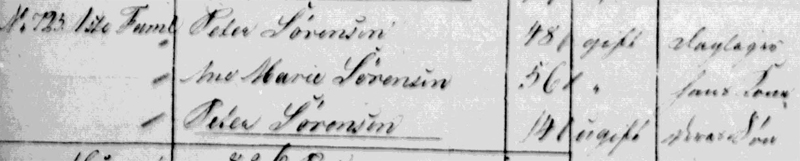 No 723 1ste Faml Peter Sörensen 48 1 gift Daglejer
" Ane Marie Sörensen 56 1 " hans Kone
" Peter Sörensen 14 1 ugift deres Sön